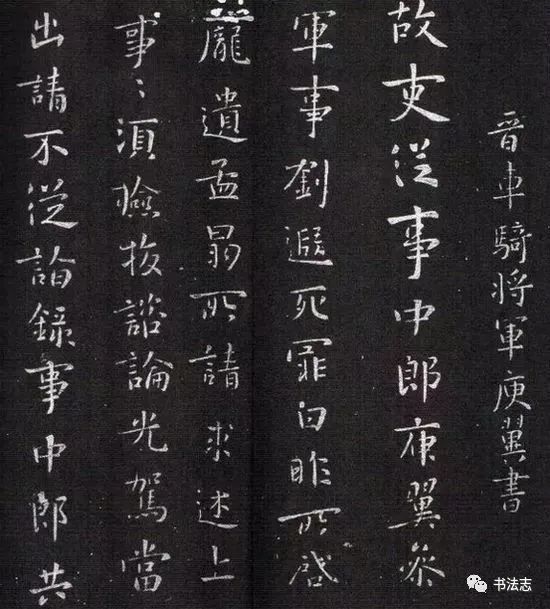 晉車騎將軍庾翼書
故吏從事中郎庾翼參
軍事劉遐死罪白昨所啓
龐遺孟昌所請求述上
事〻須檢校諮論光駕當
出請不從諮錄事中郎共
书法志